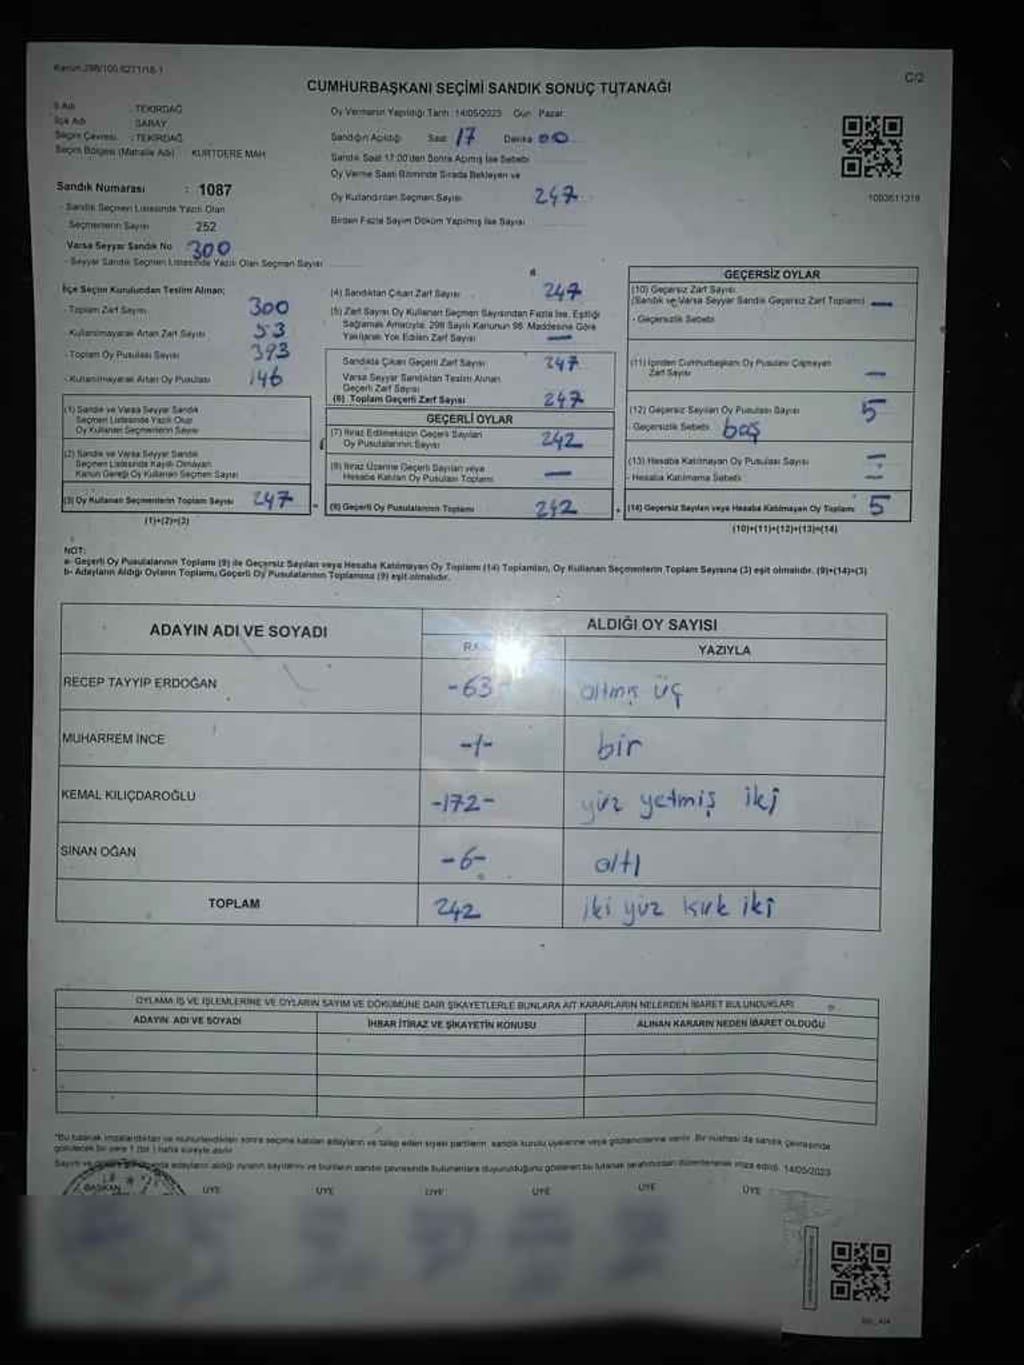 Kanun 298/100.6271/18-1
C/2
CUMHURBAŞKANI SEÇİMİ SANDIK SONUÇ TUTANAĞI
İl Adı : TEKİRDAĞ
İlçe Adı : SARAY
Seçim Çevresi : TEKİRDAĞ
Seçim Bölgesi (Mahalle Adı) KURTDERE MAH.
Oy Vermenin Yapıldığı Tarih : 14/05/2023 Gün Pazar
Sandığın Açıldığı Saat 17 Dakika 00
Sandık Saat 17.00'den Sonra Açılmış İse Sebebi
Oy Verme Saati Bitiminde Sırada Bekleyen ve
Oy Kullandırılan Seçmen Sayısı 247
Birden Fazla Sayım Döküm Yapılmış İse Sayısı
1003611319
Sandık Numarası : 1087
- Sandık Seçmen Listesinde Yazılı Olan
Seçmenlerin Sayısı 252
Varsa Seyyar Sandık No 300
- Seyyar Sandık Seçmen Listesinde Yazılı Olan Seçmen Sayısı
İlçe Seçim Kurulundan Teslim Alınan;
- Toplam Zarf Sayısı 300
- Kullanılmayarak Artan Zarf Sayısı 53
- Toplam Oy Pusulası Sayısı 393
- Kullanılmayarak Artan Oy Pusulası 146
(1) Sandık ve Varsa Seyyar Sandık
Seçmen Listesinde Yazılı Olup
Oy Kullanan Seçmenlerin Sayısı
(2) Sandık ve Varsa Seyyar Sandık
Seçmen Listesinde Kayıtlı Olmayan
Kanun Gereği Oy Kullanan Seçmen Sayısı
(3) Oy Kullanan Seçmenlerin Toplam Sayısı 247
(1)+(2)=(3)
(4) Sandıktan Çıkan Zarf Sayısı 247
(5) Zarf Sayısı Oy Kullanan Seçmen Sayısından Fazla İse, Eşitliği
Sağlamak Amacıyla, 298 Sayılı Kanunun 98. Maddesine Göre
Yakılarak Yok Edilen Zarf Sayısı —
Sandıkta Çıkan Geçerli Zarf Sayısı 247
Varsa Seyyar Sandıktan Teslim Alınan
Geçerli Zarf Sayısı
(6) Toplam Geçerli Zarf Sayısı 247
GEÇERLİ OYLAR
(7) İtiraz Edilmeksizin Geçerli Sayılan
Oy Pusulalarının Sayısı 242
(8) İtiraz Üzerine Geçerli Sayılan veya
Hesaba Katılan Oy Pusulaları Toplamı —
(9) Geçerli Oy Pusulalarının Toplamı 242
GEÇERSİZ OYLAR
(10) Geçersiz Zarf Sayısı
(Sandık ve Varsa Seyyar Sandık Geçersiz Zarf Toplamı) —
- Geçersizlik Sebebi
(11) İçinden Cumhurbaşkanı Oy Pusulası Çıkmayan
Zarf Sayısı —
(12) Geçersiz Sayılan Oy Pusulası Sayısı 5
- Geçersizlik Sebebi boş
(13) Hesaba Katılmayan Oy Pusulası Sayısı —
- Hesaba Katılmama Sebebi —
(14) Geçersiz Sayılan veya Hesaba Katılmayan Oy Toplamı 5
(10)+(11)+(12)+(13)=(14)
NOT:
a- Geçerli Oy Pusulalarının Toplamı (9) ile Geçersiz Sayılan veya Hesaba Katılmayan Oy Toplamı (14) Toplamları, Oy Kullanan Seçmenlerin Toplam Sayısına (3) eşit olmalıdır. (9)+(14)=(3)
b- Adayların Aldığı Oyların Toplamı, Geçerli Oy Pusulalarının Toplamına (9) eşit olmalıdır.
ADAYIN ADI VE SOYADI
ALDIĞI OY SAYISI
YAZIYLA
RECEP TAYYİP ERDOĞAN -63- altmış üç
MUHARREM İNCE -1- bir
KEMAL KILIÇDAROĞLU -172- yüz yetmiş iki
SİNAN OĞAN -6- altı
TOPLAM 242 iki yüz kırk iki
OYLAMA İŞ VE İŞLEMLERİNE VE OYLARIN SAYIM VE DÖKÜMÜNE DAİR ŞİKAYETLERLE BUNLARA AİT KARARLARIN NELERDEN İBARET BULUNDUKLARI
ADAYIN ADI VE SOYADI
İHBAR İTİRAZ VE ŞİKAYETİN KONUSU
ALINAN KARARIN NEDEN İBARET OLDUĞU
*Bu tutanak imzalandıktan ve mühürlendikten sonra seçime katılan adayların ve talep eden siyasi partilerin sandık kurulu üyelerine veya gözlemcilerine verilir. Bir nüshası da sandık çevresinde
görülecek bir yere 1 (bir) hafta süreyle asılır.
BAŞKAN ÜYE ÜYE ÜYE ÜYE ÜYE ÜYE